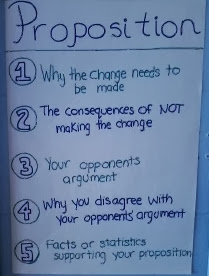 Proposition
1 Why the change needs to
be made
2 The consequences of NOT
making the change
3 Your opponents
argument
4 Why you disagree with
your opponents' argument
5 Facts or statistics
supporting your proposition